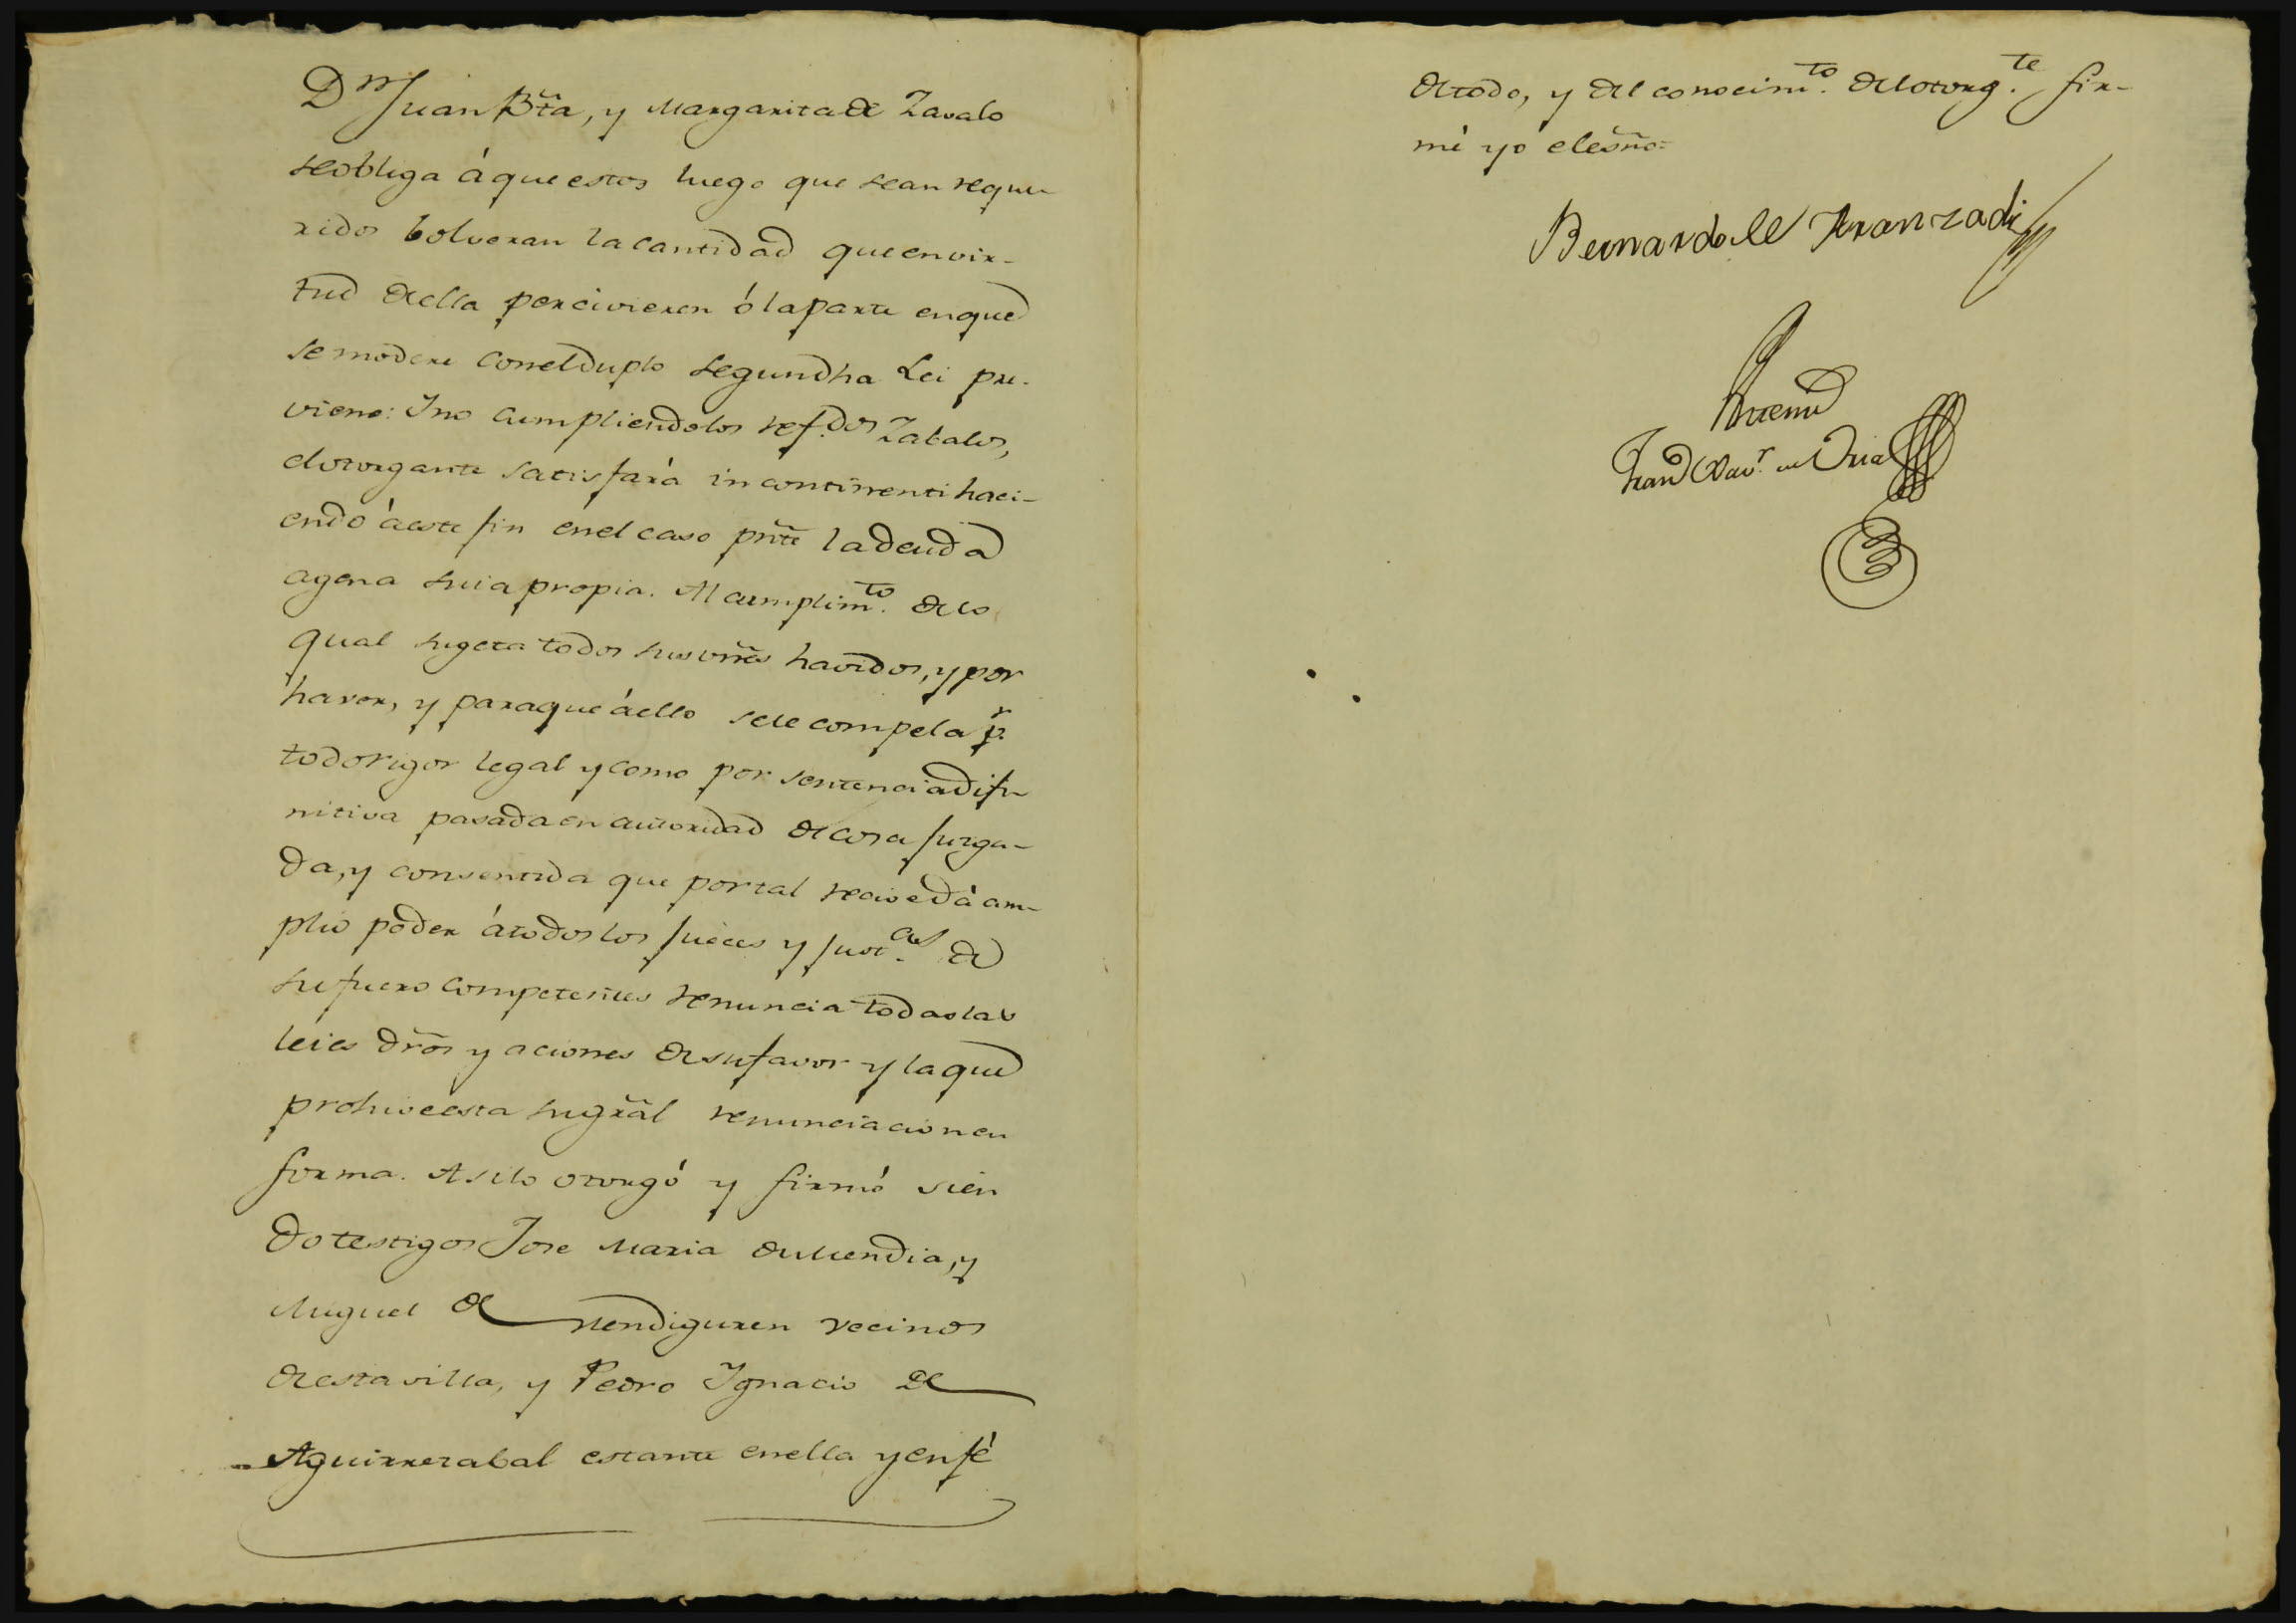 Dn Juan Bta, y Margarita de Zavalo
se obliga á que estos luego que sean reque
ridos bolveran la cantidad que en vir-
tud de ella percivieren ó la parte en que
se modere con el duplo segun dha Lei pre-
viene: Y no cumpliendolos refdos Zabalos,
el otorgante satisfará incontinenti haci-
endo á este fin en el caso pnte la deuda
agena suia propia. Al cumplimto. de lo
qual sugeta todos sus vnes havidos, y por
haver, y para que á ello se le compela pr.
todo rigor legal y como por sentencia difi
nitiva pasada en autoridad de cosa juzga-
da, y consentida que por tal recive dá am-
plio poder á todos los jueces y justas. de
su fuero competentes renuncia todas las
leies dros y aciones de su favor y la que
prohive esta su gral renunciacion en
forma. Asi lo otorgó y firmó sien
do testigos Jose Maria de Mendia, y
Miguel de Mendiguren vecinos
de esta villa, y Pedro Ignacio de
Aguirrezabal estante en ella y en fé
de todo, y del conocimto. del otorgte. fir-
mé yo el esno=
Bernardo de Aranzadi
Antemi
Franco Xavr. de Oria